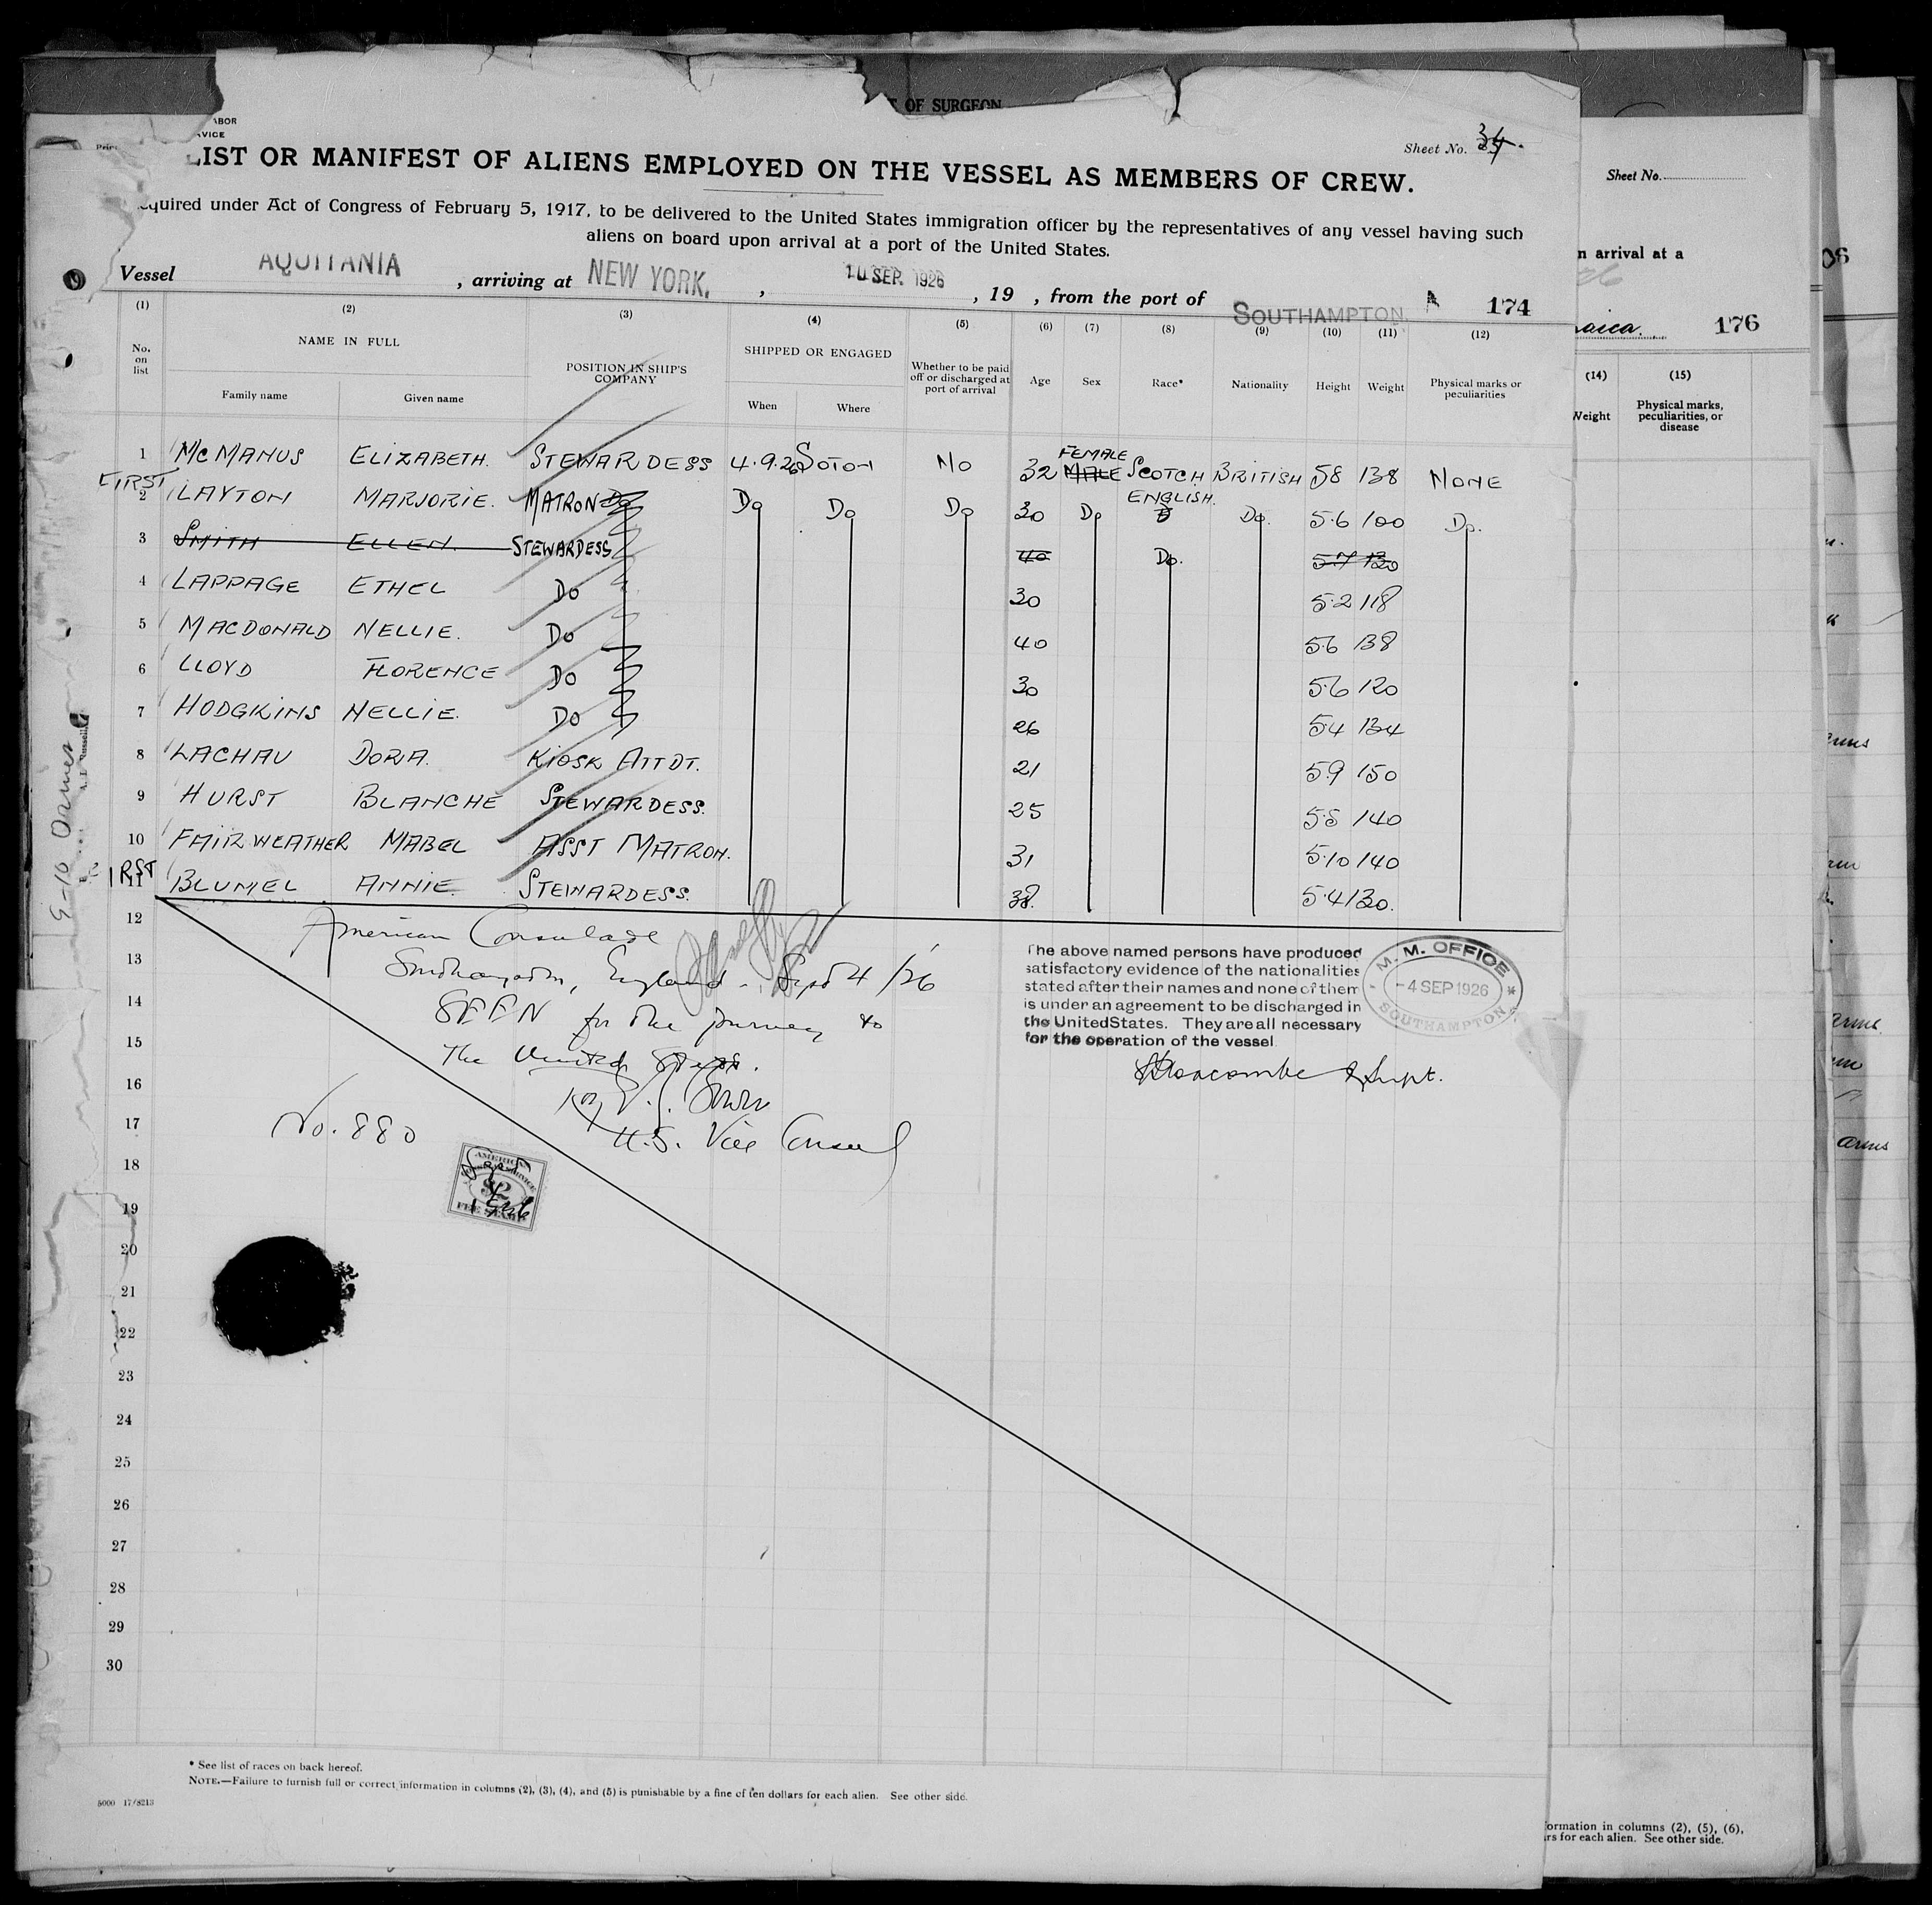 OF SURGEON
ABOR
VICE
Sheet No. 34.
LIST OR MANIFEST OF ALIENS EMPLOYED ON THE VESSEL AS MEMBERS OF CREW.
equired under Act of Congress of February 5, 1917, to be delivered to the United States immigration officer by the representatives of any vessel having such
aliens on board upon arrival at a port of the United States.
Vessel AQUITANIA, arriving at NEW YORK, , 10 SEP. 1926, 19 , from the port of SOUTHAMPTON. 174
(1) (2) (3) (4) (5) (6) (7) (8) (9) (10) (11) (12)
No. on list NAME IN FULL POSITION IN SHIP'S COMPANY SHIPPED OR ENGAGED Whether to be paid off or discharged at port of arrival Age Sex Race* Nationality Height Weight Physical marks or peculiarities
Family name Given name When Where
1 McMANUS ELIZABETH. STEWARDESS 4.9.26 SOTON NO 32 MALE FEMALE SCOTCH BRITISH 5 8 138 NONE
FIRST
2 LAYTON MARJORIE. MATRON Do Do Do Do 30 Do ENGLISH. Do. 5.6 100 Do.
3 SMITH ELLEN. STEWARDESS 40 Do. 5.7 130
4 LAPPAGE ETHEL Do 30 5.2 118
5 MACDONALD NELLIE. Do 40 5.6 138
6 LLOYD FLORENCE Do 30 5.6 120
7 HODGKINS NELLIE. Do 26 5.4 134
8 LACHAU DORA. KIOSK ATTDT. 21 5.9 150
9 HURST BLANCHE STEWARDESS. 25 5.8 140
10 FAIRWEATHER MABEL ASST MATRON. 31 5.10 140
FIRST
11 BLUMEL ANNIE. STEWARDESS. 38. 5.4 130.
12 American Consulate
13 Southampton, England. Sept 4/26
14 SEEN for the journey to
15 The United States.
16
17 No. 880 U.S. Vice Consul
The above named persons have produced
satisfactory evidence of the nationalities
stated after their names and none of them
is under an agreement to be discharged in
the United States. They are all necessary
for the operation of the vessel
M. M. OFFICE
-4 SEP 1926
SOUTHAMPTON
Supt.
AMERICAN
$2
FEE STAMP
18
19
20
21
22
23
24
25
26
27
28
29
30
* See list of races on back hereof.
NOTE.—Failure to furnish full or correct information in columns (2), (3), (4), and (5) is punishable by a fine of ten dollars for each alien. See other side.
5000 17/8213
Sheet No.
n arrival at a
aica. 176
(14) (15)
Weight Physical marks, peculiarities, or disease
formation in columns (2), (5), (6),
rs for each alien. See other side.
06
arms